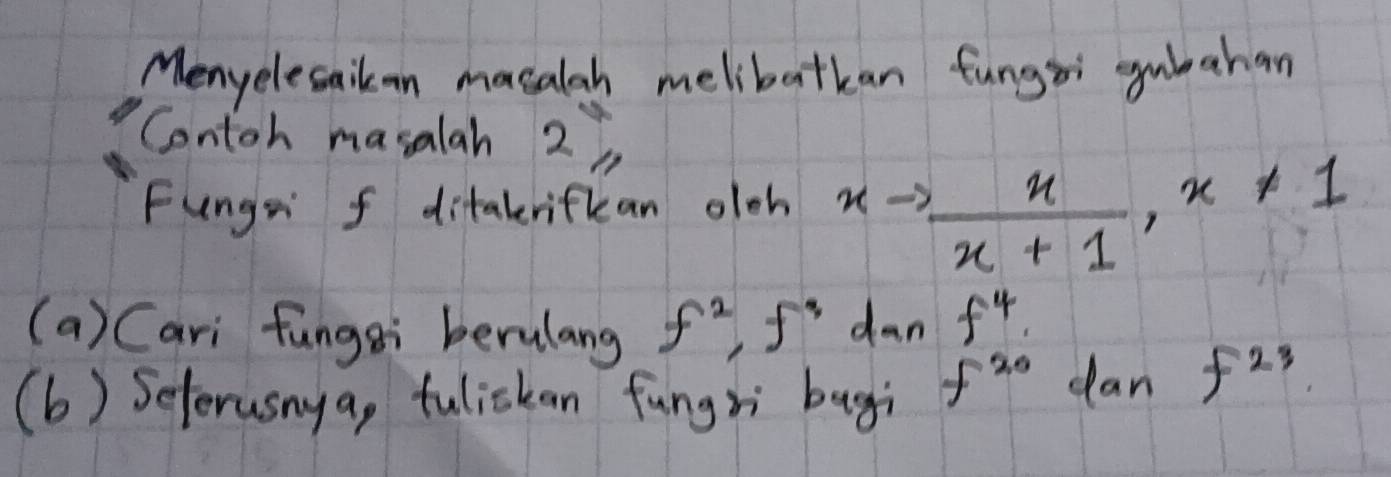 Menyelesaikan masalah melibatkan fungsi gubahan
"Contoh masalah 2"
"Fungsi f ditakrifkan oleh x → x / x + 1, x ≠ 1
(a) Cari fungsi berulang f², f³ dan f⁴.
(b) Seterusnya, tuliskan fungsi bagi f²⁰ dan f²³.